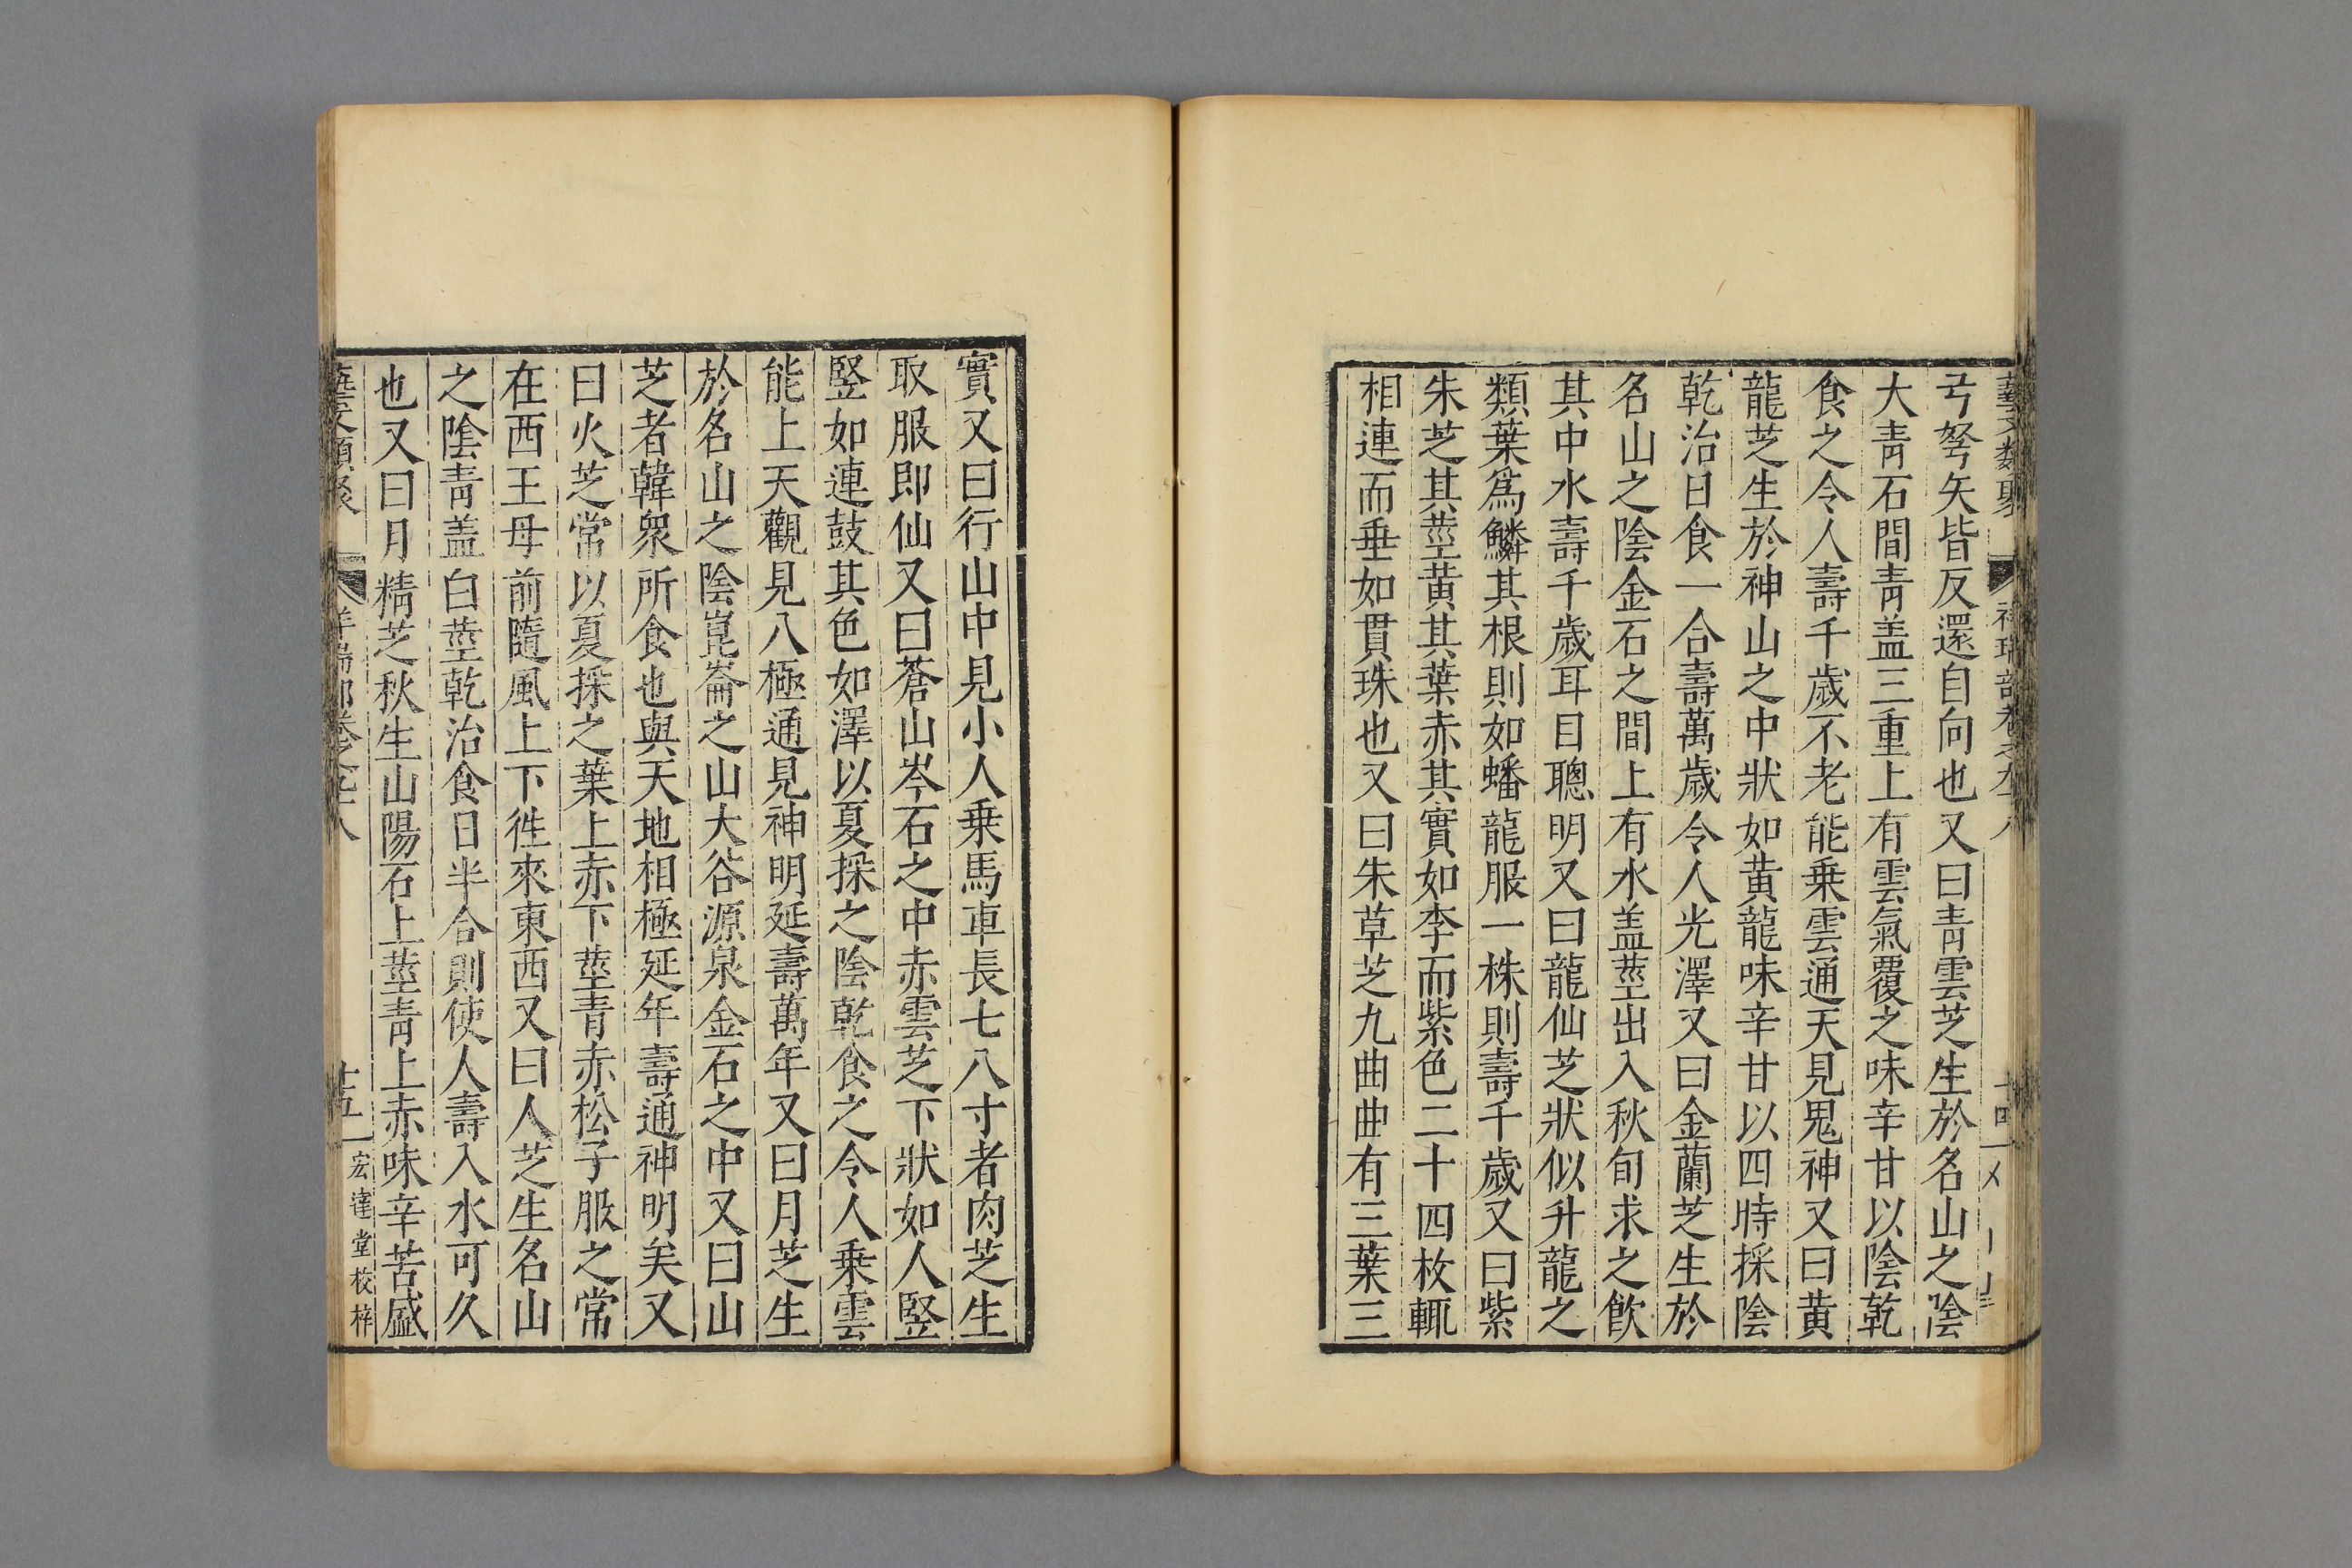 弓弩矢皆反還自向也又曰青雲芝生於名山之隂
大青石間青盖三重上有雲氣覆之味辛甘以隂乾
食之令人壽千歲不老能乗雲通天見鬼神又曰黄
龍芝生於神山之中狀如黄龍味辛甘以四時採隂
乾治日食一合壽萬歲令人光澤又曰金蘭芝生於
名山之隂金石之間上有水盖莖出入秋旬求之飲
其中水壽千歲耳目聰明又曰龍仙芝狀似升龍之
類葉爲鱗其根則如蟠龍服一株則壽千歲又曰紫
朱芝其莖黄其葉赤其實如李而紫色二十四枚輒
相連而垂如貫珠也又曰朱草芝九曲曲有三葉三
實又曰行山中見小人乗馬車長七八寸者肉芝生
取服即仙又曰蒼山岑石之中赤雲芝下狀如人竪
竪如連鼓其色如澤以夏採之隂乾食之令人乗雲
能上天觀見八極通見神明延壽萬年又曰月芝生
於名山之隂崑崙之山大谷源泉金石之中又曰山
芝者韓衆所食也與天地相極延年壽通神明矣又
曰火芝常以夏採之葉上赤下莖青赤松子服之常
在西王母前隨風上下徃來東西又曰人芝生名山
之隂青盖白莖乾治食日半合則使人壽入水可久
也又曰月精芝秋生山陽石上莖青上赤味辛苦盛
藝文類聚 祥瑞部卷之九十八 十五 宏達堂校梓